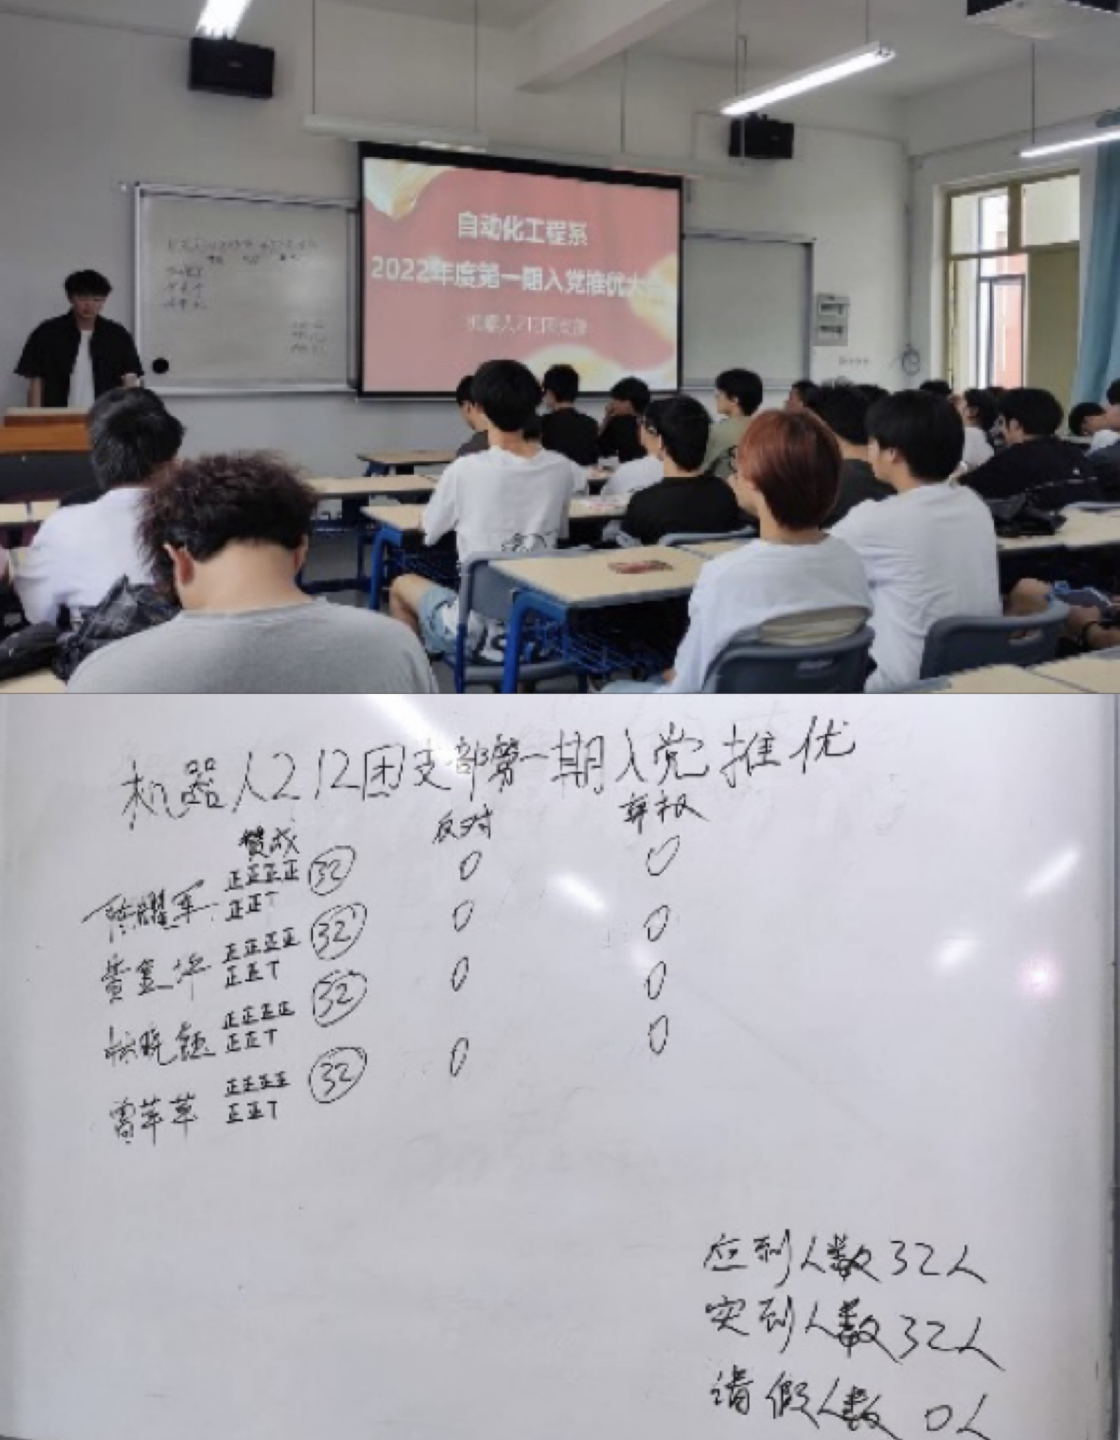 自动化工程系
2022年度第一期入党推优大
机器人212团支部
机器人212团支部第一期入党推优
赞成 反对 弃权
陈耀军 正正正正正正T 32 0 0
黄鑫 正正正正正正T 32 0 0
晓 正正正正正正T 32 0 0
雷苹苹 正正正正正正T 32 0 0
应到人数32人
实到人数32人
请假人数 0人